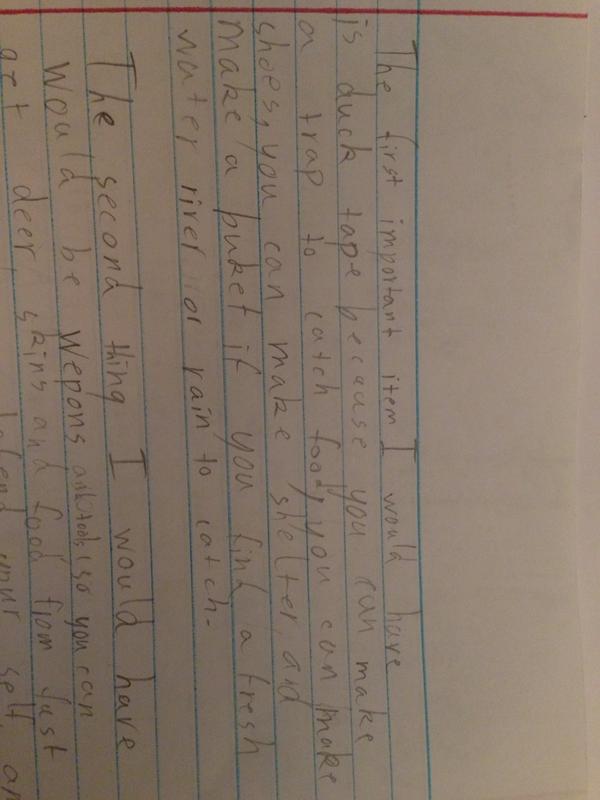 The first important item I would have
is duck tape because you can make
a trap to catch food, you can make
shoes, you can make shelter, and
make a buket if you find a fresh
water river or rain to catch.
The second thing I would have
Would be Wepons and tools so you can
get deer skins and food from just
your self,